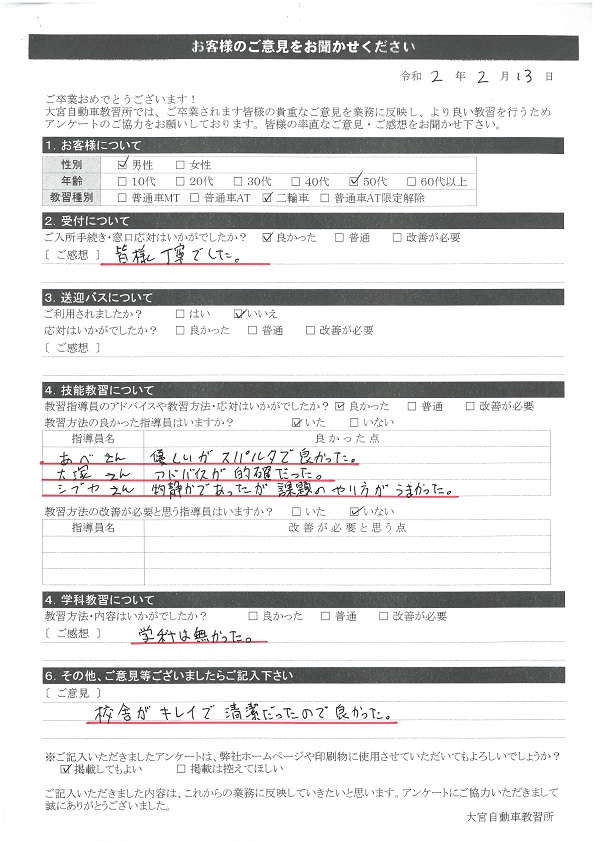 お客様のご意見をお聞かせください
令和 2 年 2 月 13 日
ご卒業おめでとうございます！
大宮自動車教習所では、ご卒業されます皆様の貴重なご意見を業務に反映し、より良い教習を行うため
アンケートのご協力をお願いしております。皆様の率直なご意見・ご感想をお聞かせ下さい。
1. お客様について
性別 ☑男性 □女性
年齢 □10代 □20代 □30代 □40代 ☑50代 □60代以上
教習種別 □普通車MT □普通車AT ☑二輪車 □普通車AT限定解除
2. 受付について
ご入所手続き・窓口応対はいかがでしたか？ ☑良かった □普通 □改善が必要
［ ご感想 ］ 皆様丁寧でした。
3. 送迎バスについて
ご利用されましたか？ □はい ☑いいえ
応対はいかがでしたか？ □良かった □普通 □改善が必要
［ ご感想 ］
4. 技能教習について
教習指導員のアドバイスや教習方法・応対はいかがでしたか？ ☑良かった □普通 □改善が必要
教習方法の良かった指導員はいますか？ ☑いた □いない
指導員名 良かった点
あべさん 優しいがスパルタで良かった。
大塚さん アドバイスが的確だった。
シブヤさん 物静かであったが課題のやり方がうまかった。
教習方法の改善が必要と思う指導員はいますか？ □いた ☑いない
指導員名 改善が必要と思う点
4. 学科教習について
教習方法・内容はいかがでしたか？ □良かった □普通 □改善が必要
［ ご感想 ］ 学科は無かった。
6. その他、ご意見等ございましたらご記入下さい
［ ご意見 ］
校舎がキレイで清潔だったので良かった。
※ご記入いただきましたアンケートは、弊社ホームページや印刷物に使用させていただいてもよろしいでしょうか？
☑掲載してもよい □掲載は控えてほしい
ご記入いただきました内容は、これからの業務に反映していきたいと思います。アンケートにご協力いただきまして
誠にありがとうございました。
大宮自動車教習所